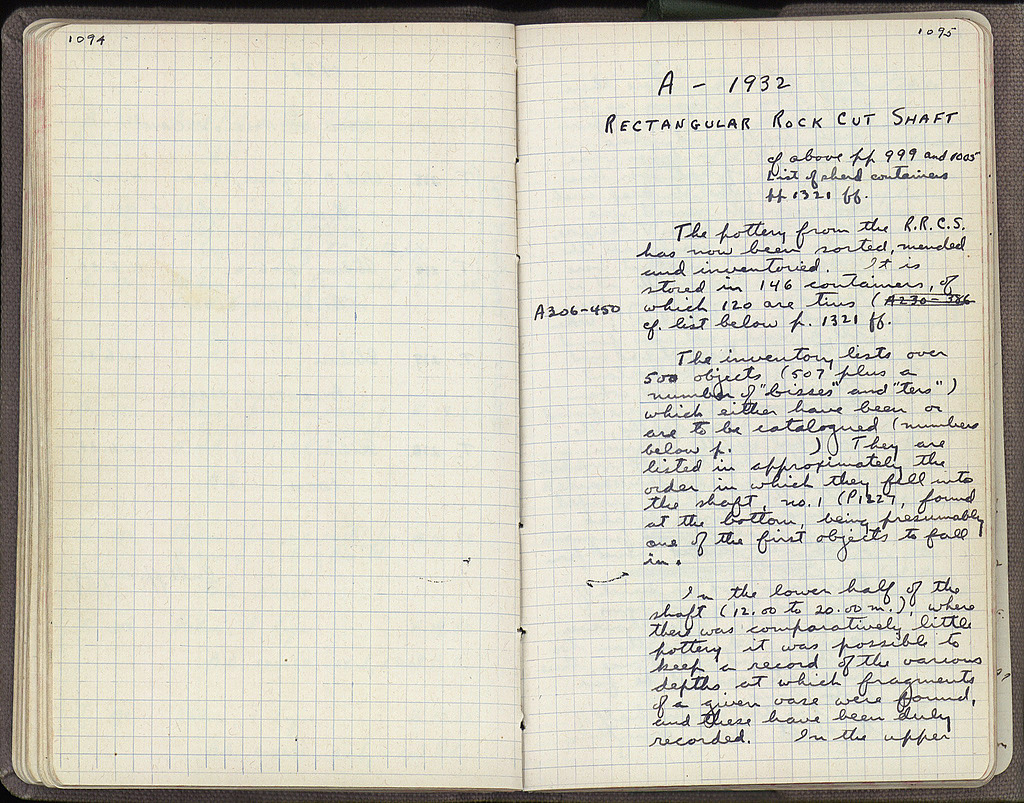 1094
1095
A - 1932
RECTANGULAR ROCK CUT SHAFT
cf above pp 999 and 1005
List of sherd containers
pp 1321 ff.
The pottery from the R.R.C.S.
has now been sorted, mended
and inventoried. It is
stored in 146 containers, of
A306-450 which 120 are tins (A230-386
cf. list below p. 1321 ff.
The inventory lists over
500 objects (507 plus a
number of "bisses" and "ters")
which either have been or
are to be catalogued (numbers
below p. ) They are
listed in approximately the
order in which they fell into
the shaft, no. 1 (P1227, found
at the bottom, being presumably
one of the first objects to fall
in.
In the lower half of the
shaft (12.00 to 20.00 m.), where
there was comparatively little
pottery it was possible to
keep a record of the various
depths at which fragments
of a given vase were found,
and these have been duly
recorded. In the upper